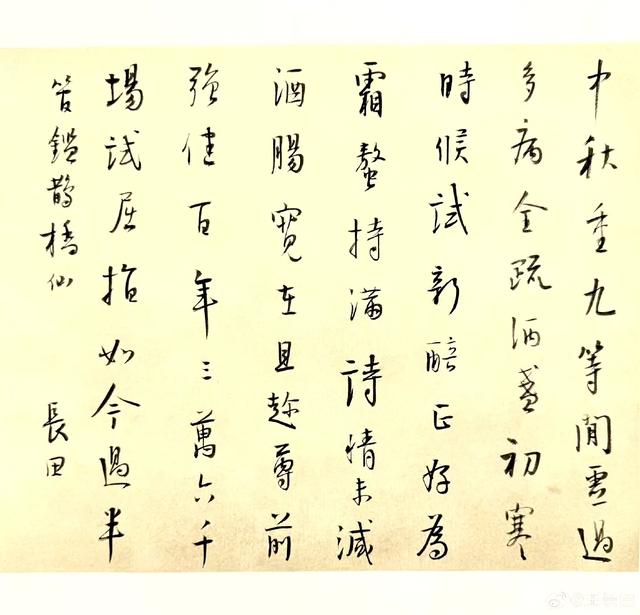 中秋重九等閒虛過
多病全疏酒盞初寒
時候試新醅正好為
霜螯持滿詩情未減
酒腸寬在且趂尊前
強健百年三萬六千
場試屈指如今過半
管鑑鵲橋仙 長田